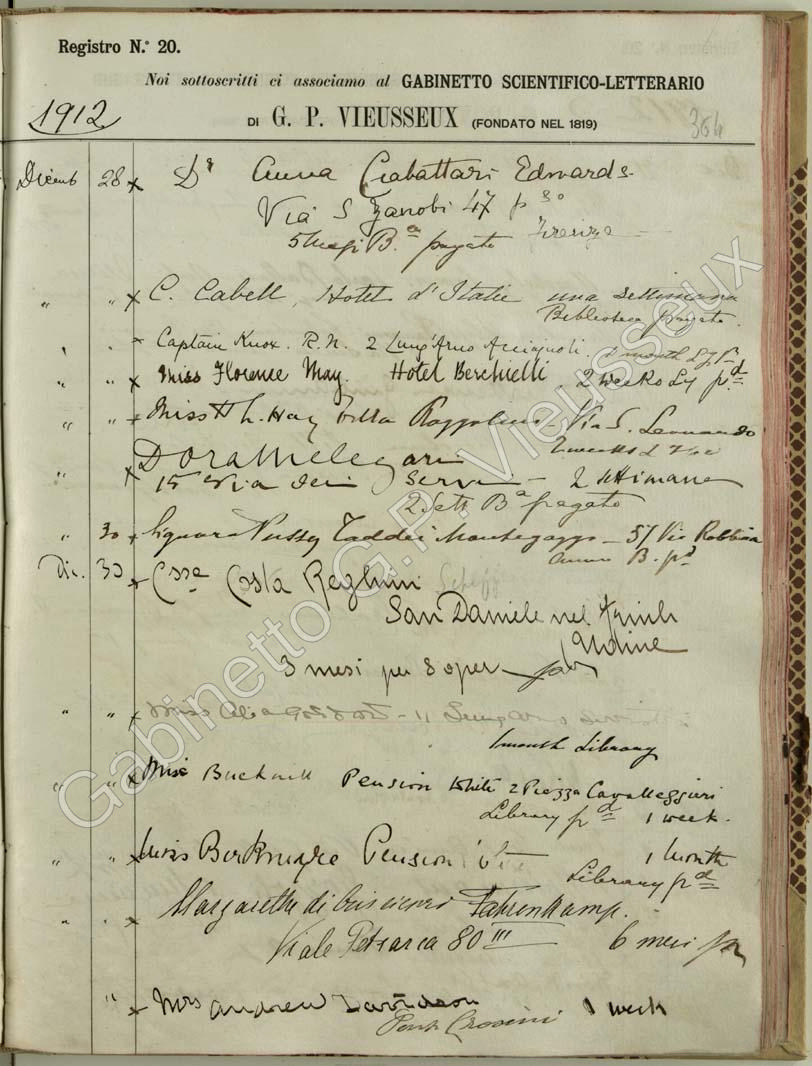 Registro N.° 20.
Noi sottoscritti ci associamo al GABINETTO SCIENTIFICO-LETTERARIO
1912
DI G. P. VIEUSSEUX (FONDATO NEL 1819)
364
Dicemb 28 x Dr Anna Ciabattari Edwards
Via S Zanobi 47 p 3o
5 mesi B.a pagato Firenze
" " x C. Cabell, Hotel d'Italie una settimana
Biblioteca pagata.
Captain Knox. R.N. 2 Lung'Arno Acciajuoli, 1 month
" " x Miss Florence May. Hotel Berchielli, 2 weeks Ly pd
" " x Miss H L. Hay Villa Via S. Leonardo
2 weeks
" x Dora Melegari
15 Via dei Servi - 2 settimane
2 Sett Ba pagato
" 30 x Signora Taddei Mantegazza - 57 Via Robbia
anno B. pd
Dic. 30 x Cssa Costa Reghini
San Daniele nel Friuli
Udine
3 mesi per 8 opere
" " x Miss - 11 Lung Arno
1 month Library
" " x Miss Bucknill Pension White 2 Piazza Cavalleggieri
Library pd 1 week.
" " x Miss Pension 1 month
Library pd
" " x Margarethe di Fahrenkamp.
Viale Petrarca 80 III 6 mesi
" x Mrs Andrew Davidson 1 week
Pens Crocini
Gabinetto G.P. Vieusseux